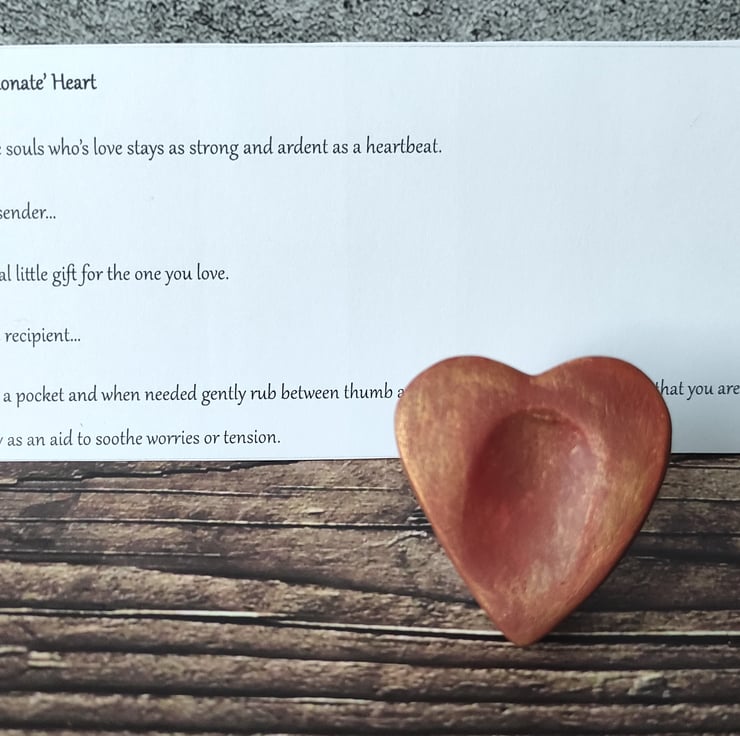 onate’ Heart
souls who’s love stays as strong and ardent as a heartbeat.
sender...
al little gift for the one you love.
recipient...
a pocket and when needed gently rub between thumb a that you are
as an aid to soothe worries or tension.